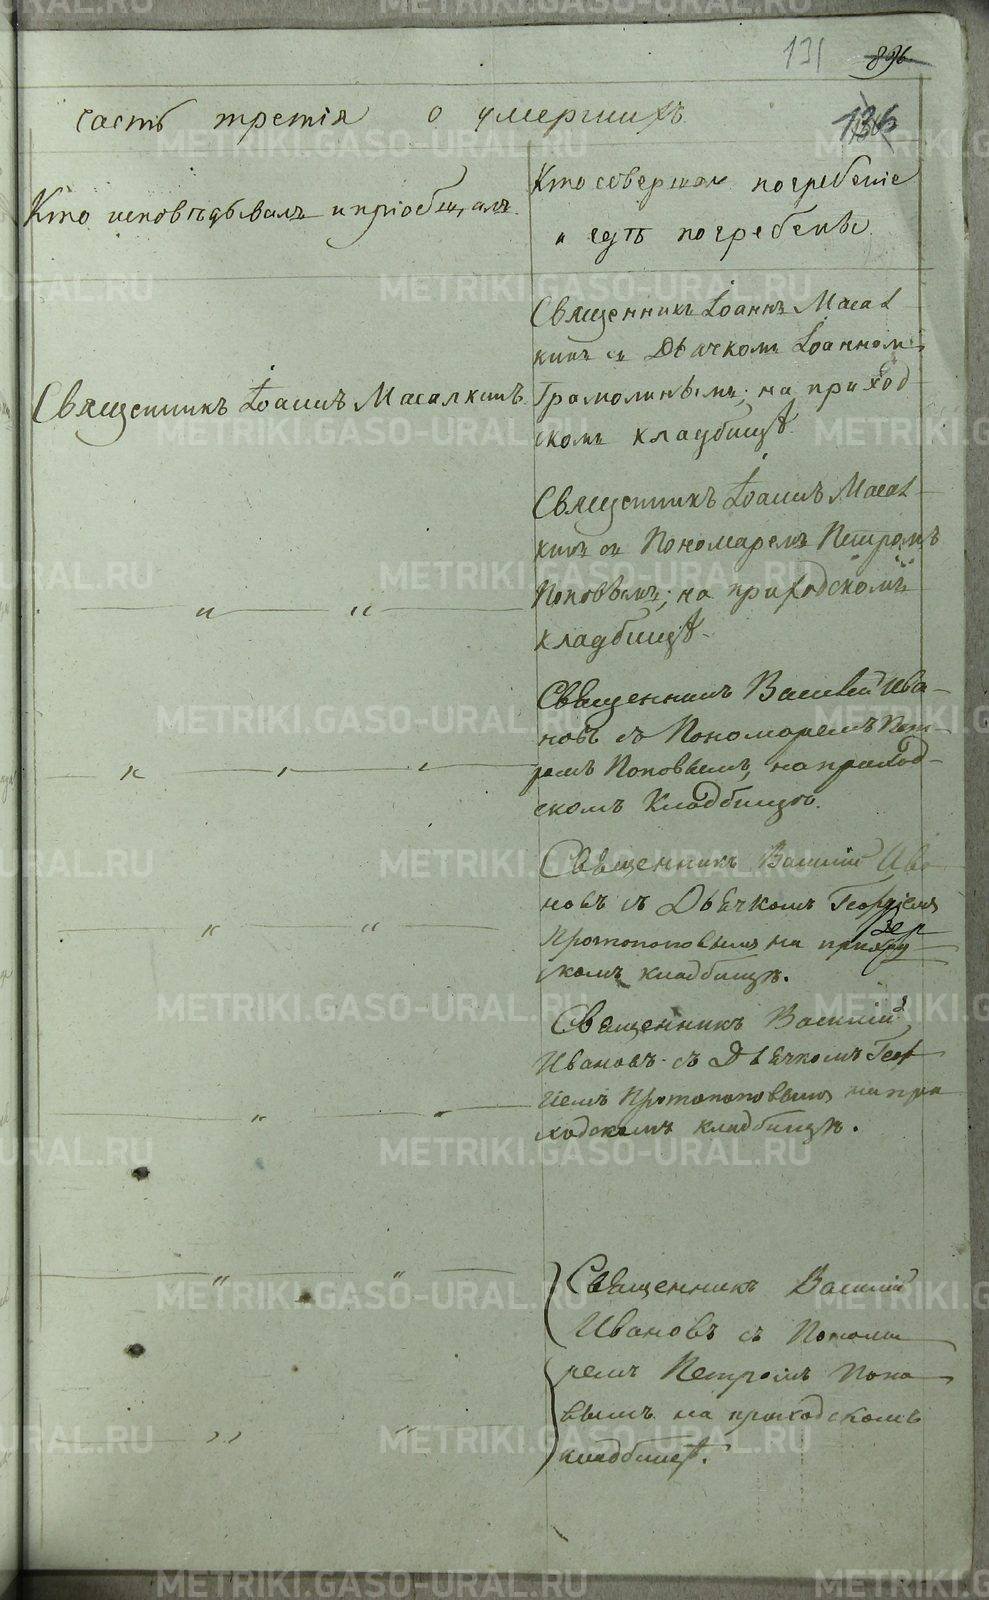 131 896
136
часть третія о умершихъ
Кто исповѣдывалъ и пріобщалъ
Кто совершалъ погребеніе
и гдѣ погребены
Священникъ Іоаннъ Масалкинъ
Священникъ Іоаннъ Масал
кинъ съ Дьячкомъ Іоанномъ
Грамолинымъ; на приход
скомъ кладбищѣ
Священникъ Іоаннъ Масал
кинъ съ Пономаремъ Петромъ
Поповымъ; на приходскомъ
кладбищѣ
Священникъ Василій Ива
новъ съ Пономаремъ Пет
ромъ Поповымъ, на приход
скомъ Кладбищѣ.
Священникъ Василій Ива
новъ съ Дьячкомъ Георгіемъ
Протопоповымъ на приход
скомъ кладбищѣ.
Священникъ Василій
Ивановъ съ Дьячкомъ Геор
гіемъ Протопоповымъ на при
ходскомъ кладбищѣ.
Священникъ Василій
Ивановъ съ Понома
ремъ Петромъ Попо
вымъ на приходскомъ
кладбищѣ.
METRIKI.GASO-URAL.RU